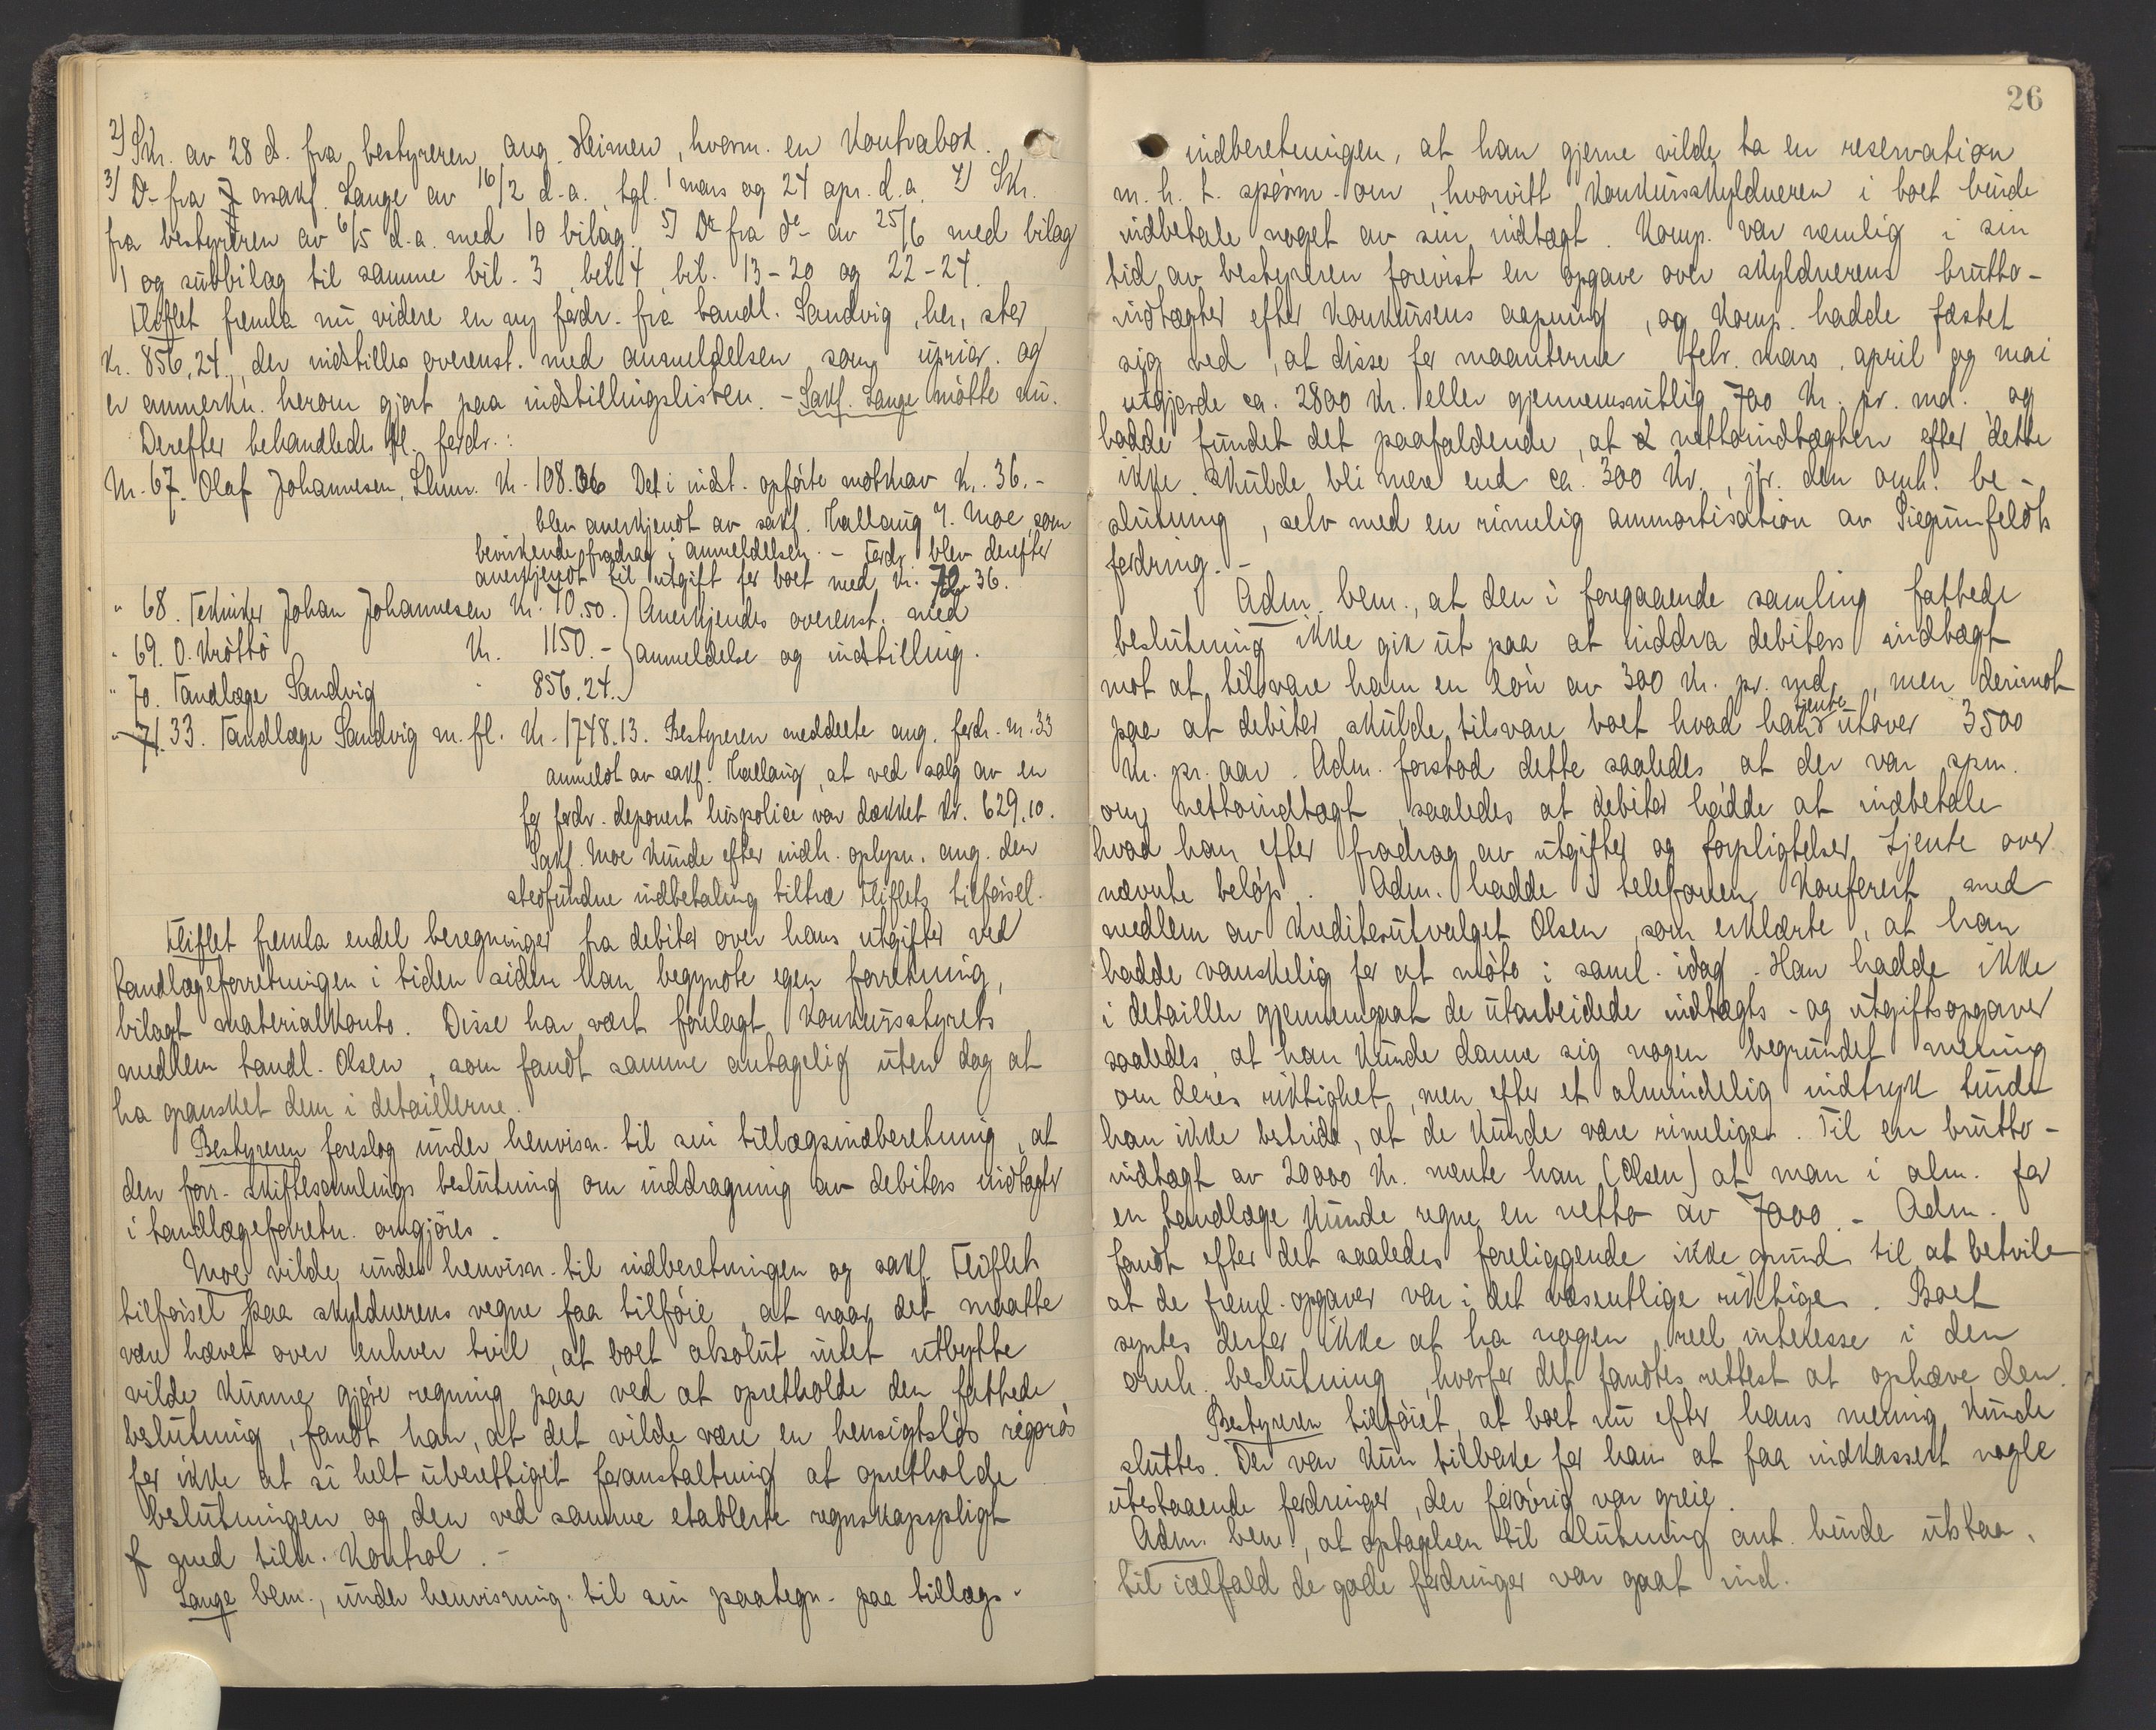 2) Skr. av 28 ds. fra bestyreren ang. Heimen, hvorm. en Kontrabok.
3) Do fra J. orsakf. Lange av 16/2 d.a., tgl. 1 mars og 24 apr. d.a. 4) Skr.
fra bestyreren av 6/5 d.a. med 10 bilag. 5) Do fra do av 25/6 med bilag
1 og subbilag til samme bil. 3, bil. 4, bil. 13-20 og 22-24.
Tliflet fremla nu videre en ny fordr. fra tandl. Sandvig, her, stor
kr. 856,24, der indstilles overenst. med anmeldelsen som uprior. og
er anmerkn. herom gjort paa indstillingslisten. - Sakf. Lange mötte nu.
Derefter behandledes fl. fordr.:
Nr. 67. Olaf Johannesen, Lhmr. Kr. 108.36 Det i indst. opförte motkrav Kr. 36.-
blev anerkjendt av sakf. Hallang f. Moe, som
bevirkende fradrag i anmeldelsen. - Fordr. blev derefter
anerkjendt til utgift for boet med kr. 72.36.
" 68. Tekniker Johan Johannesen Kr. 70.50. Anerkjendes overenst. med
" 69. O. Kröttö Kr. 1150.- anmeldelse og indstilling.
" 70. Tandlæge Sandvig " 856.24.
" 71. 33. Tandlæge Sandvig m. fl. Kr. 1748.13. Bestyreren meddelte ang. fordr. nr. 33
anmeldt av sakf. Hallang, at ved salg av en
for fordr. deponert livspolice var dækket kr. 629,10.
Sakf. Moe kunde efter indh. oplysn. ang. den
stedfundne indbetaling tiltræ Tliflets tilförsel.
Tliflet fremla endel beregninger fra debitor over hans utgifter ved
tandlægeforretningen i tiden siden han begyndte egen forretning,
bilagt materialkonto. Disse har vært forelagt Konkursstyrets
medlem tandl. Olsen, som fandt samme antagelig uten dog at
ha gransket dem i detaillerne.
Bestyreren foreslog under henvisn. til sin tillægsindberetning, at
den forr. skiftesamlings beslutning om inddragning av debitors indtægter
i tandlægeforretn. omgjöres.
Moe vilde under henvisn. til indberetningen og sakf. Tliflets
tilförsel paa skyldnerens vegne faa tilföie, at naar det maatte
være hævet over enhver tvil, at boet absolut intet utbytte
vilde kunne gjöre regning paa ved at opretholde den fattede
beslutning, fandt han, at det vilde være en hensigtslös rigorös
for ikke at si helt uberettiget foranstaltning at opretholde
beslutningen og den ved samme etablerte regnskapspligt
f med tilh. Kontrol. -
Lange bem., under henvisning til sin paategn. paa tillægs-
26
indberetningen, at han gjerne vilde ta en reservation
m. h. t. spörsm. om, hvorvitt Konkursskyldneren i boet burde
indbetale noget av sin indtægt. Komp. var nemlig i sin
tid av bestyreren forevist en opgave over skyldnerens brutto-
indtægter efter Konkursens aapning, og Komp. hadde fæstet
sig ved, at disse for maanterne febr. mars, april og mai
utgjorde ca. 2800 kr. eller gjennemsnitlig 700 kr. pr. md. og
hadde fundet det paafaldende, at nettoindtægten efter dette
ikke skulde bli mere end ca. 300 kr., jfr. den omh. be-
slutning, selv med en rimelig ammortisation av Siegumfeldts
fordring. -
Adm. bem., at den i foregaaende samling fattede
beslutning ikke gik ut paa at inddra debitors indtægt
mot at tilsvare ham en lön av 300 kr. pr. md., men derimot
paa at debitor skulde tilsvare boet hvad han tjente utover 3500
kr. pr. aar. Adm. forstod dette saaledes, at der var spm.
om nettoindtægt, saaledes at debitor hadde at indbetale
hvad han efter fradrag av utgifter og forpligtelser tjente over
nævnte belöp. Adm. hadde i telefonen Konferert med
medlem av Kreditorutvalget Olsen, som erklærte, at han
hadde vanskelig for at möte i saml. idag. Han hadde ikke
i detailler gjennemgaat de utarbeidede indtægts- og utgiftsopgaver
saaledes, at han kunde danne sig nogen begrundet mening
om deres riktighet, men efter et almindelig indtryk turde
han ikke bestride, at de kunde være rimelige. Til en brutto-
indtægt av 20000 kr. mente han (Olsen) at man i alm. for
en tandlæge kunde regne en netto av 7000. - Adm.
fandt efter det saaledes foreliggende ikke grund til at betvile
at de freml. opgaver var i det væsentlige riktige. Boet
syntes derfor ikke at ha nogen reel interesse i den
omh. beslutning, hvorfor det fandtes rettest at ophæve den.
Bestyreren tilföiet, at boet nu efter hans mening kunde
sluttes. Der var kun tilbake for ham at faa indkassert nogle
utestaaende fordringer, der forövrig var greie.
Adm. bem., at optagelsen til slutning ant. burde utstaa,
til ialfald de gode fordringer var gaat ind.